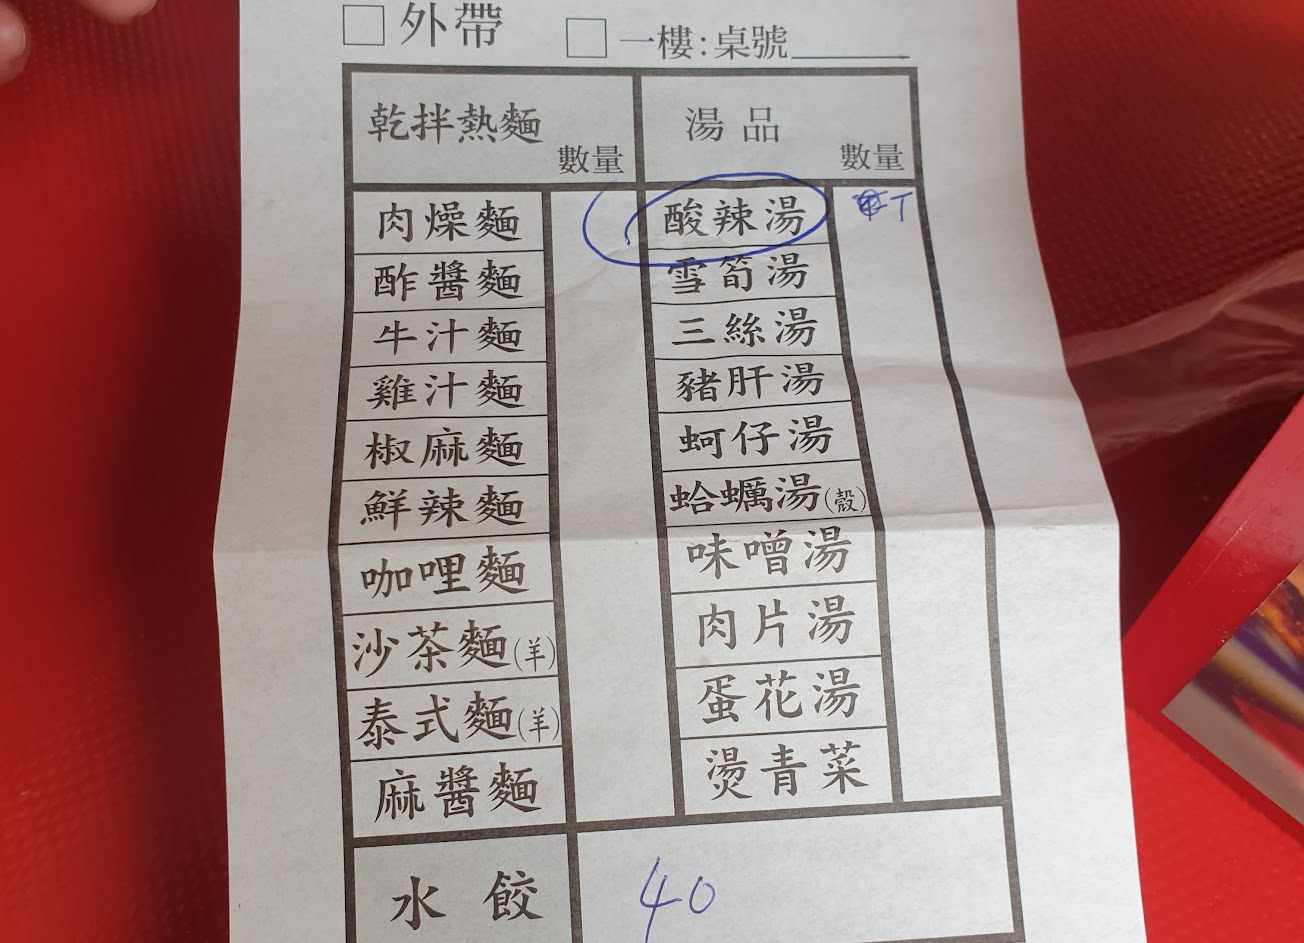 □外帶 □一樓:桌號______
乾拌熱麵 數量 湯品 數量
肉燥麵 酸辣湯 丁
酢醬麵 雪筍湯
牛汁麵 三絲湯
雞汁麵 豬肝湯
椒麻麵 蚵仔湯
鮮辣麵 蛤蠣湯(殼)
咖哩麵 味噌湯
沙茶麵(羊) 肉片湯
泰式麵(羊) 蛋花湯
麻醬麵 燙青菜
水餃 40